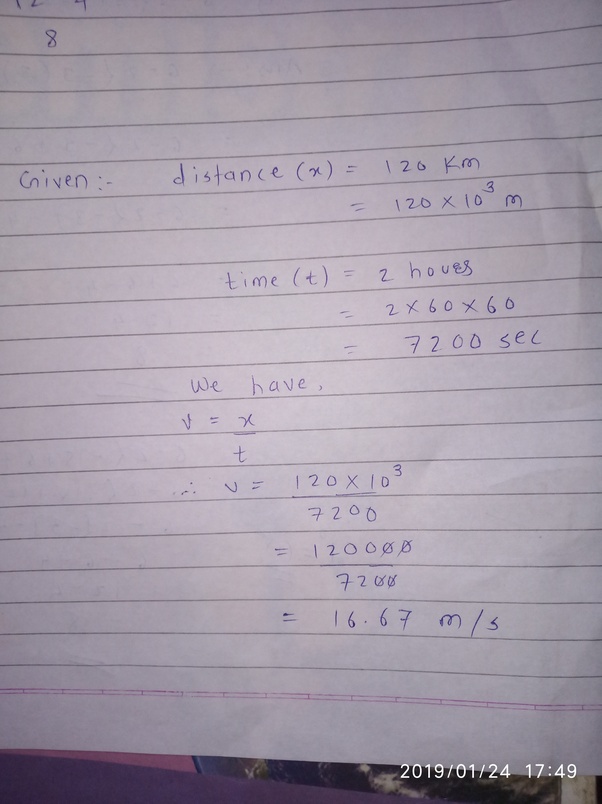 8
Given:- distance (x) = 120 Km
= 120 × 10³ m
time (t) = 2 houes
= 2 × 60 × 60
= 7200 sec
We have,
v = x
t
∴ v = 120 × 10³
7200
= 120000
7200
= 16.67 m/s
2019/01/24 17:49